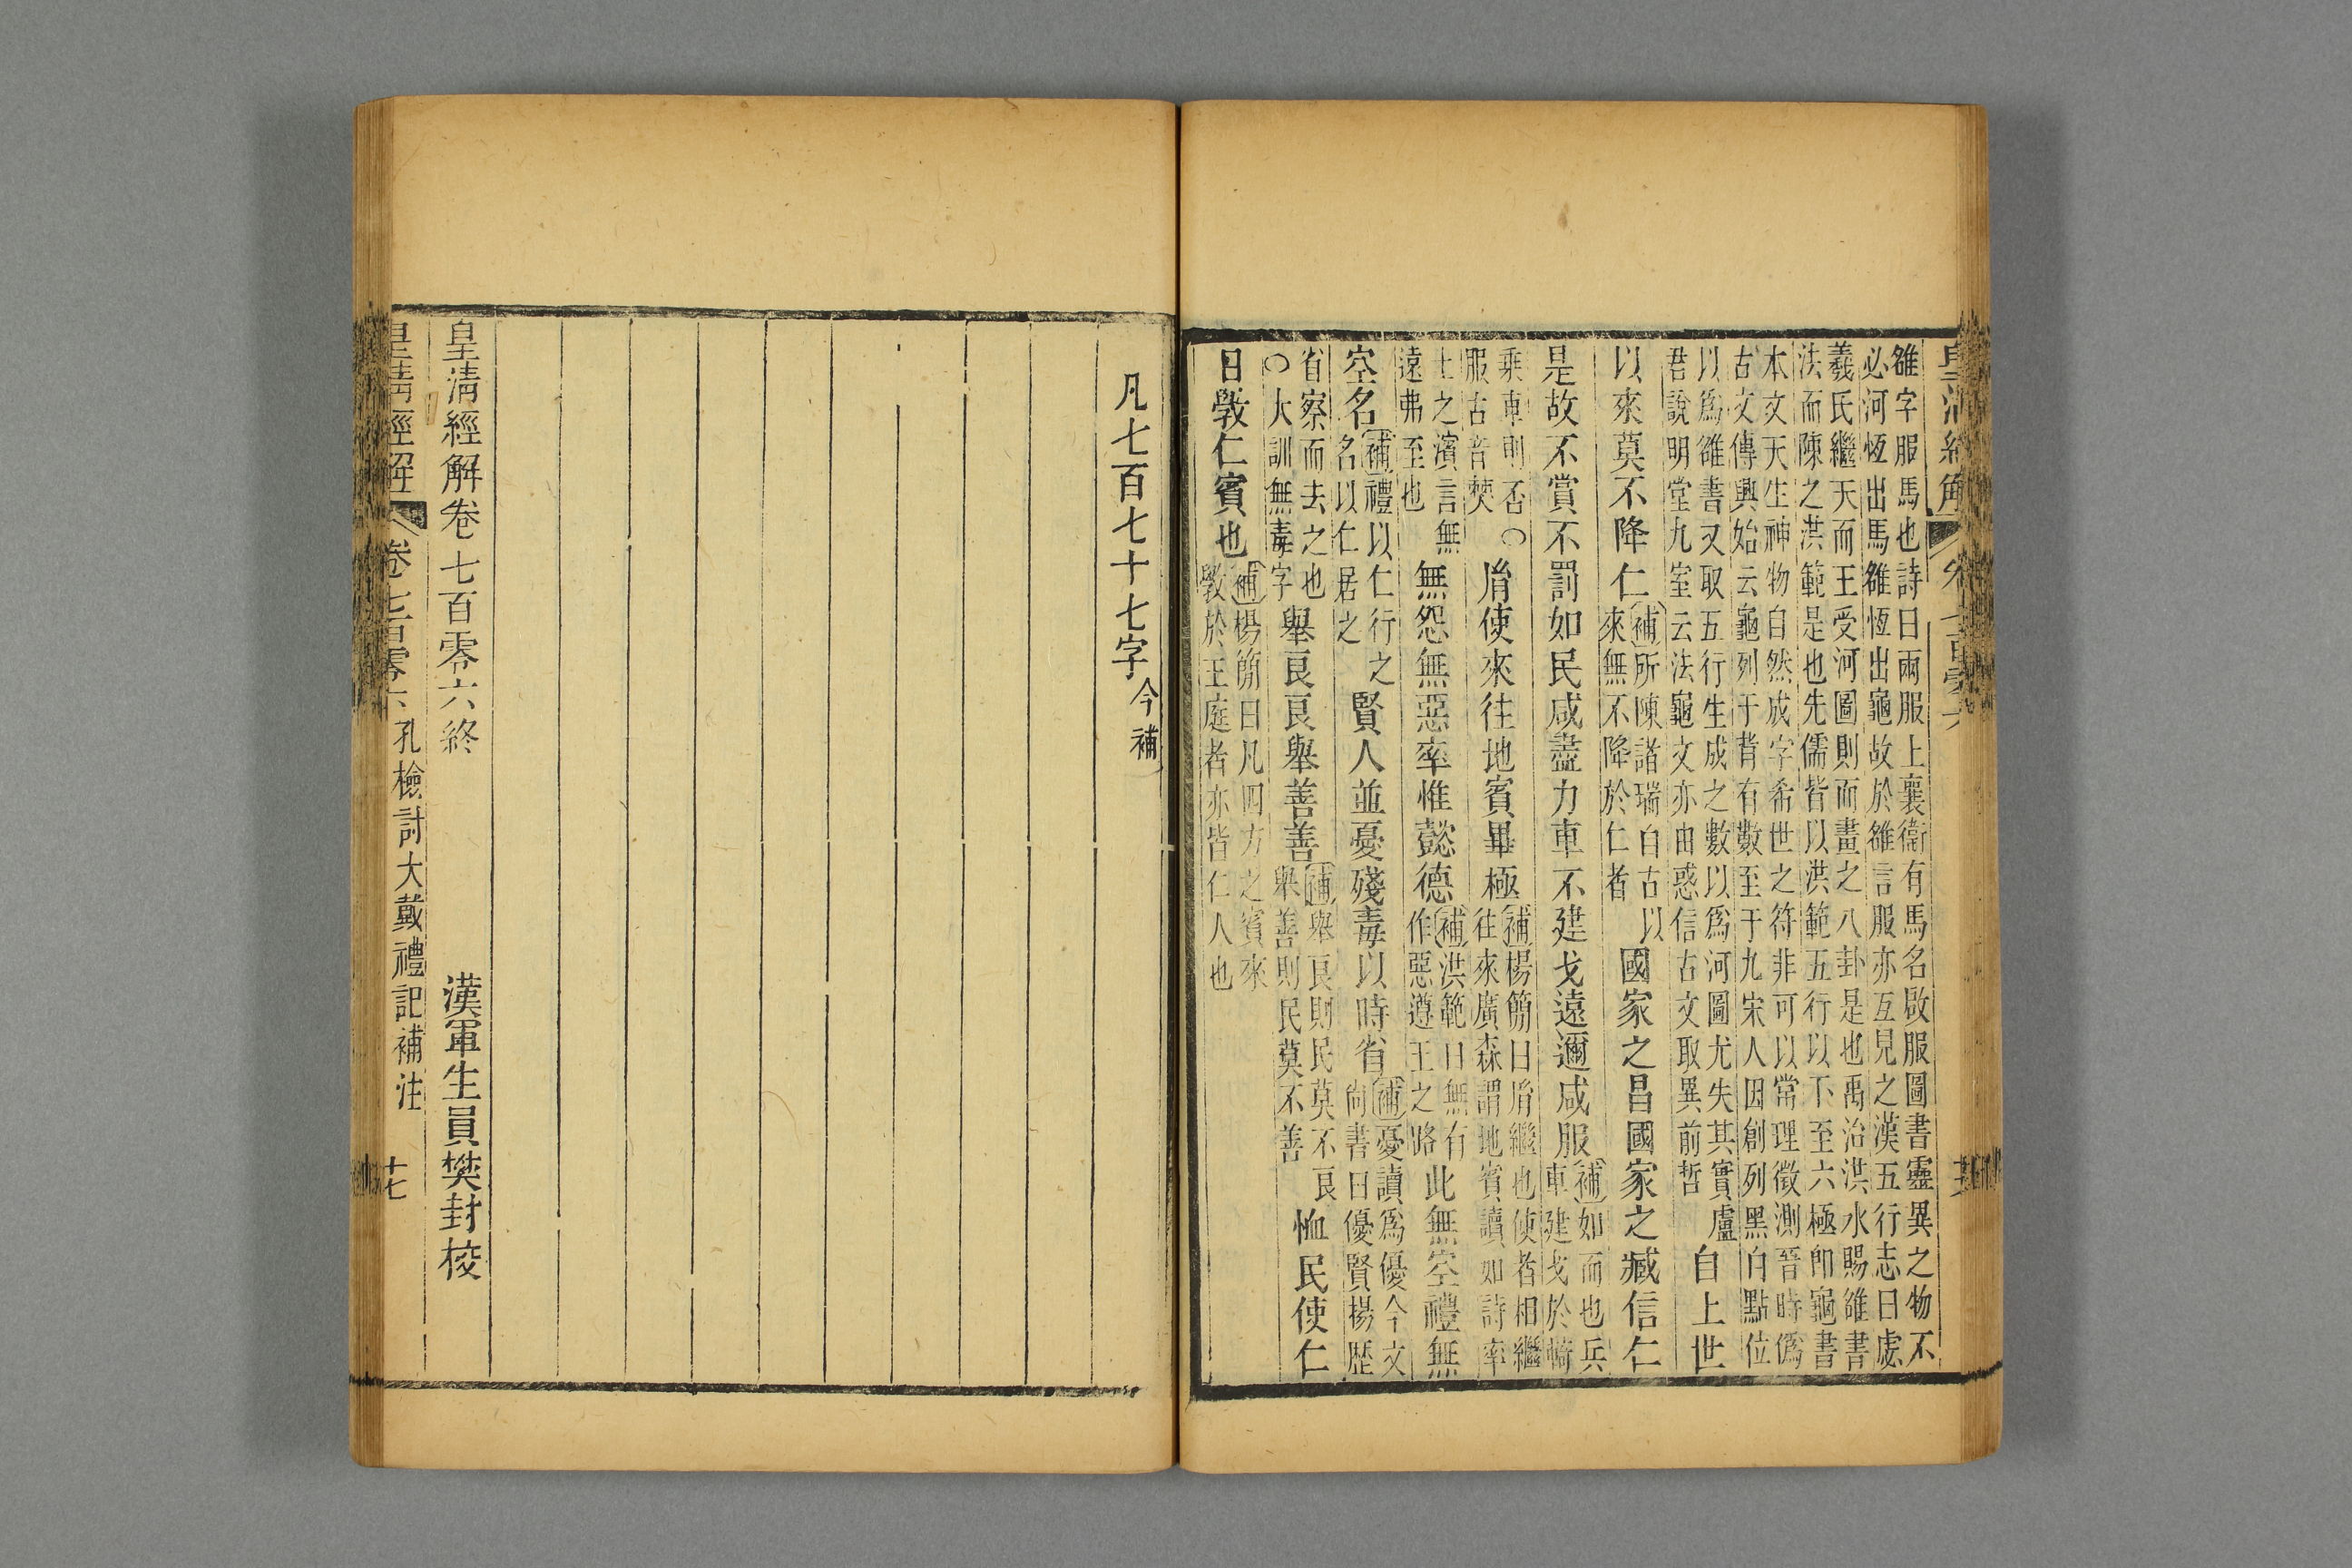 皇清經解 卷七百零六
雒字服馬也詩曰兩服上襄衞有馬名啟服圖書靈異之物不
必河恆出馬雒恆出龜故於雒言服亦互見之漢五行志曰虙
羲氏繼天而王受河圖則而畫之八卦是也禹治洪水賜雒書
法而陳之洪範是也先儒皆以洪範五行以下至六極卽龜書
本文天生神物自然成字希世之符非可以常理徵測晉時僞
古文傳興始云龜列于背有數至于九宋人因創列黑白點位
以爲雒書又取五行生成之數以爲河圖尤失其實盧
君說明堂九室云法龜文亦由惑信古文取異前哲
自上世
以來莫不降仁
補所陳諸瑞自古以
來無不降於仁者
國家之昌國家之臧信仁
是故不賞不罰如民咸盡力車不建戈遠邇咸服
補如而也兵
車建戈於輢
乘車則否○
服古音㷡
胤使來往地賓畢極
補楊簡曰胤繼也使者相繼
往來廣森謂地賓讀如詩率
土之濱言無
遠弗至也
無怨無惡率惟懿德
補洪範曰無有
作惡遵王之路
此無空禮無
空名
補禮以仁行之
名以仁居之
賢人並憂殘毒以時省
補憂讀爲優今文
尚書曰優賢揚歷
省察而去之也
○大訓無毒字
舉良良舉善善
補舉良則民莫不良
舉善則民莫不善
恤民使仁
日斆仁賓也
補楊簡曰凡四方之賓來
斆於王庭者亦皆仁人也
凡七百七十七字
今補
皇清經解卷七百零六終
漢軍生員樊封校
皇清經解 卷七百零六 孔檢討大戴禮記補注 十七